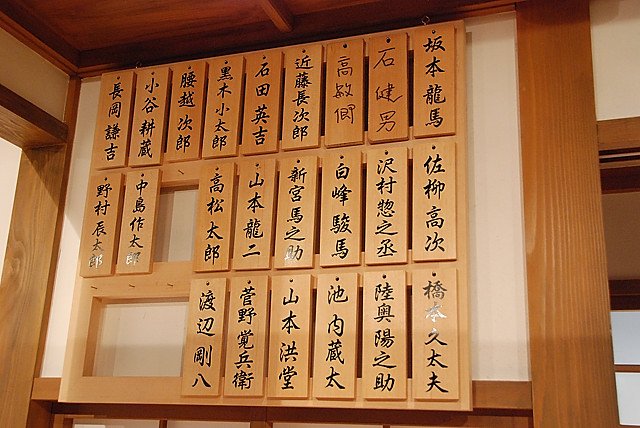 坂本龍馬
石健男
高敏側
近藤長次郎
石田英吉
黒木小太郎
腰越次郎
小谷耕蔵
長岡謙吉
佐柳高次
沢村惣之丞
白峰駿馬
新宮馬之助
山本龍二
高松太郎
中島作太郎
野村辰太郎
橋本久太夫
陸奥陽之助
池内蔵太
山本洪堂
菅野覚兵衛
渡辺剛八